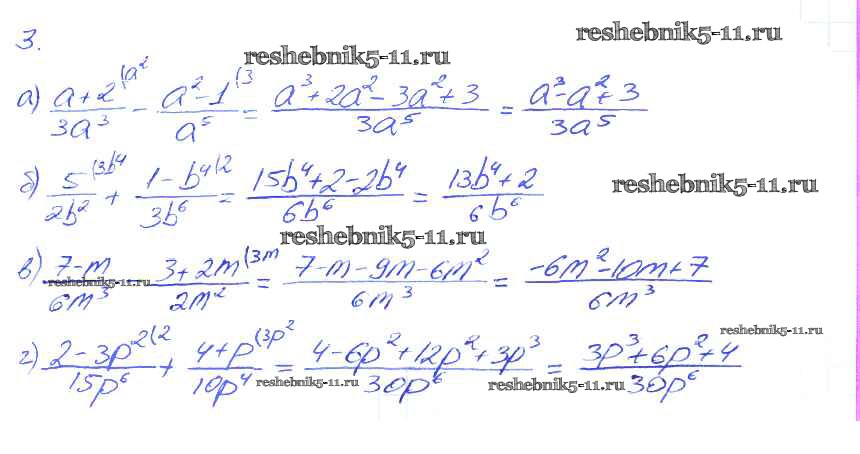 reshebnik5-11.ru
3.
reshebnik5-11.ru
а) (a+2)/(3a³) (a² − (a²−1)/(a⁵) (3 = (a³+2a²−3a²+3)/(3a⁵) = (a³−a²+3)/(3a⁵)
б) 5/(2b²) (3b⁴ + (1−b⁴)/(3b⁶) (2 = (15b⁴+2−2b⁴)/(6b⁶) = (13b⁴+2)/(6b⁶)
reshebnik5-11.ru
reshebnik5-11.ru
в) (7−m)/(6m³) (3+2m)/(2m²) (3m = (7−m−9m−6m²)/(6m³) = (−6m²−10m+7)/(6m³)
reshebnik5-11.ru
reshebnik5-11.ru
г) (2−3p²)/(15p⁶) (2 + (4+p)/(10p⁴) (3p² = (4−6p²+12p²+3p³)/(30p⁶) = (3p³+6p²+4)/(30p⁶)
reshebnik5-11.ru
reshebnik5-11.ru